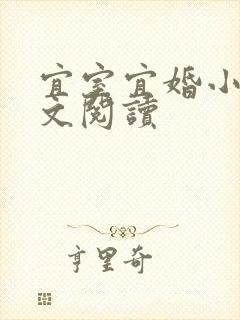 宜室宜婚小
文閱讀
亨里奇